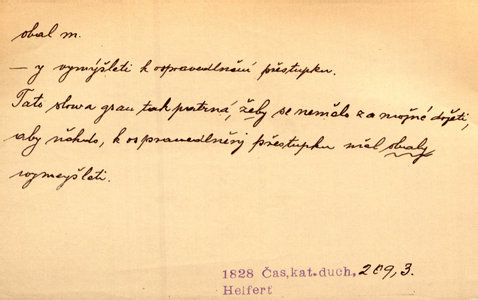 obal m.
— y vymýšleti k ospravedlnění přestupku.
Tato slowa gsau tak patrná, žeby se nemělo za možné držeti,
aby někdo, k ospravedlněnj přestupku měl obaly
wymeyšleti.
1828 Čas.kat.duch. 289,3.
Helfert